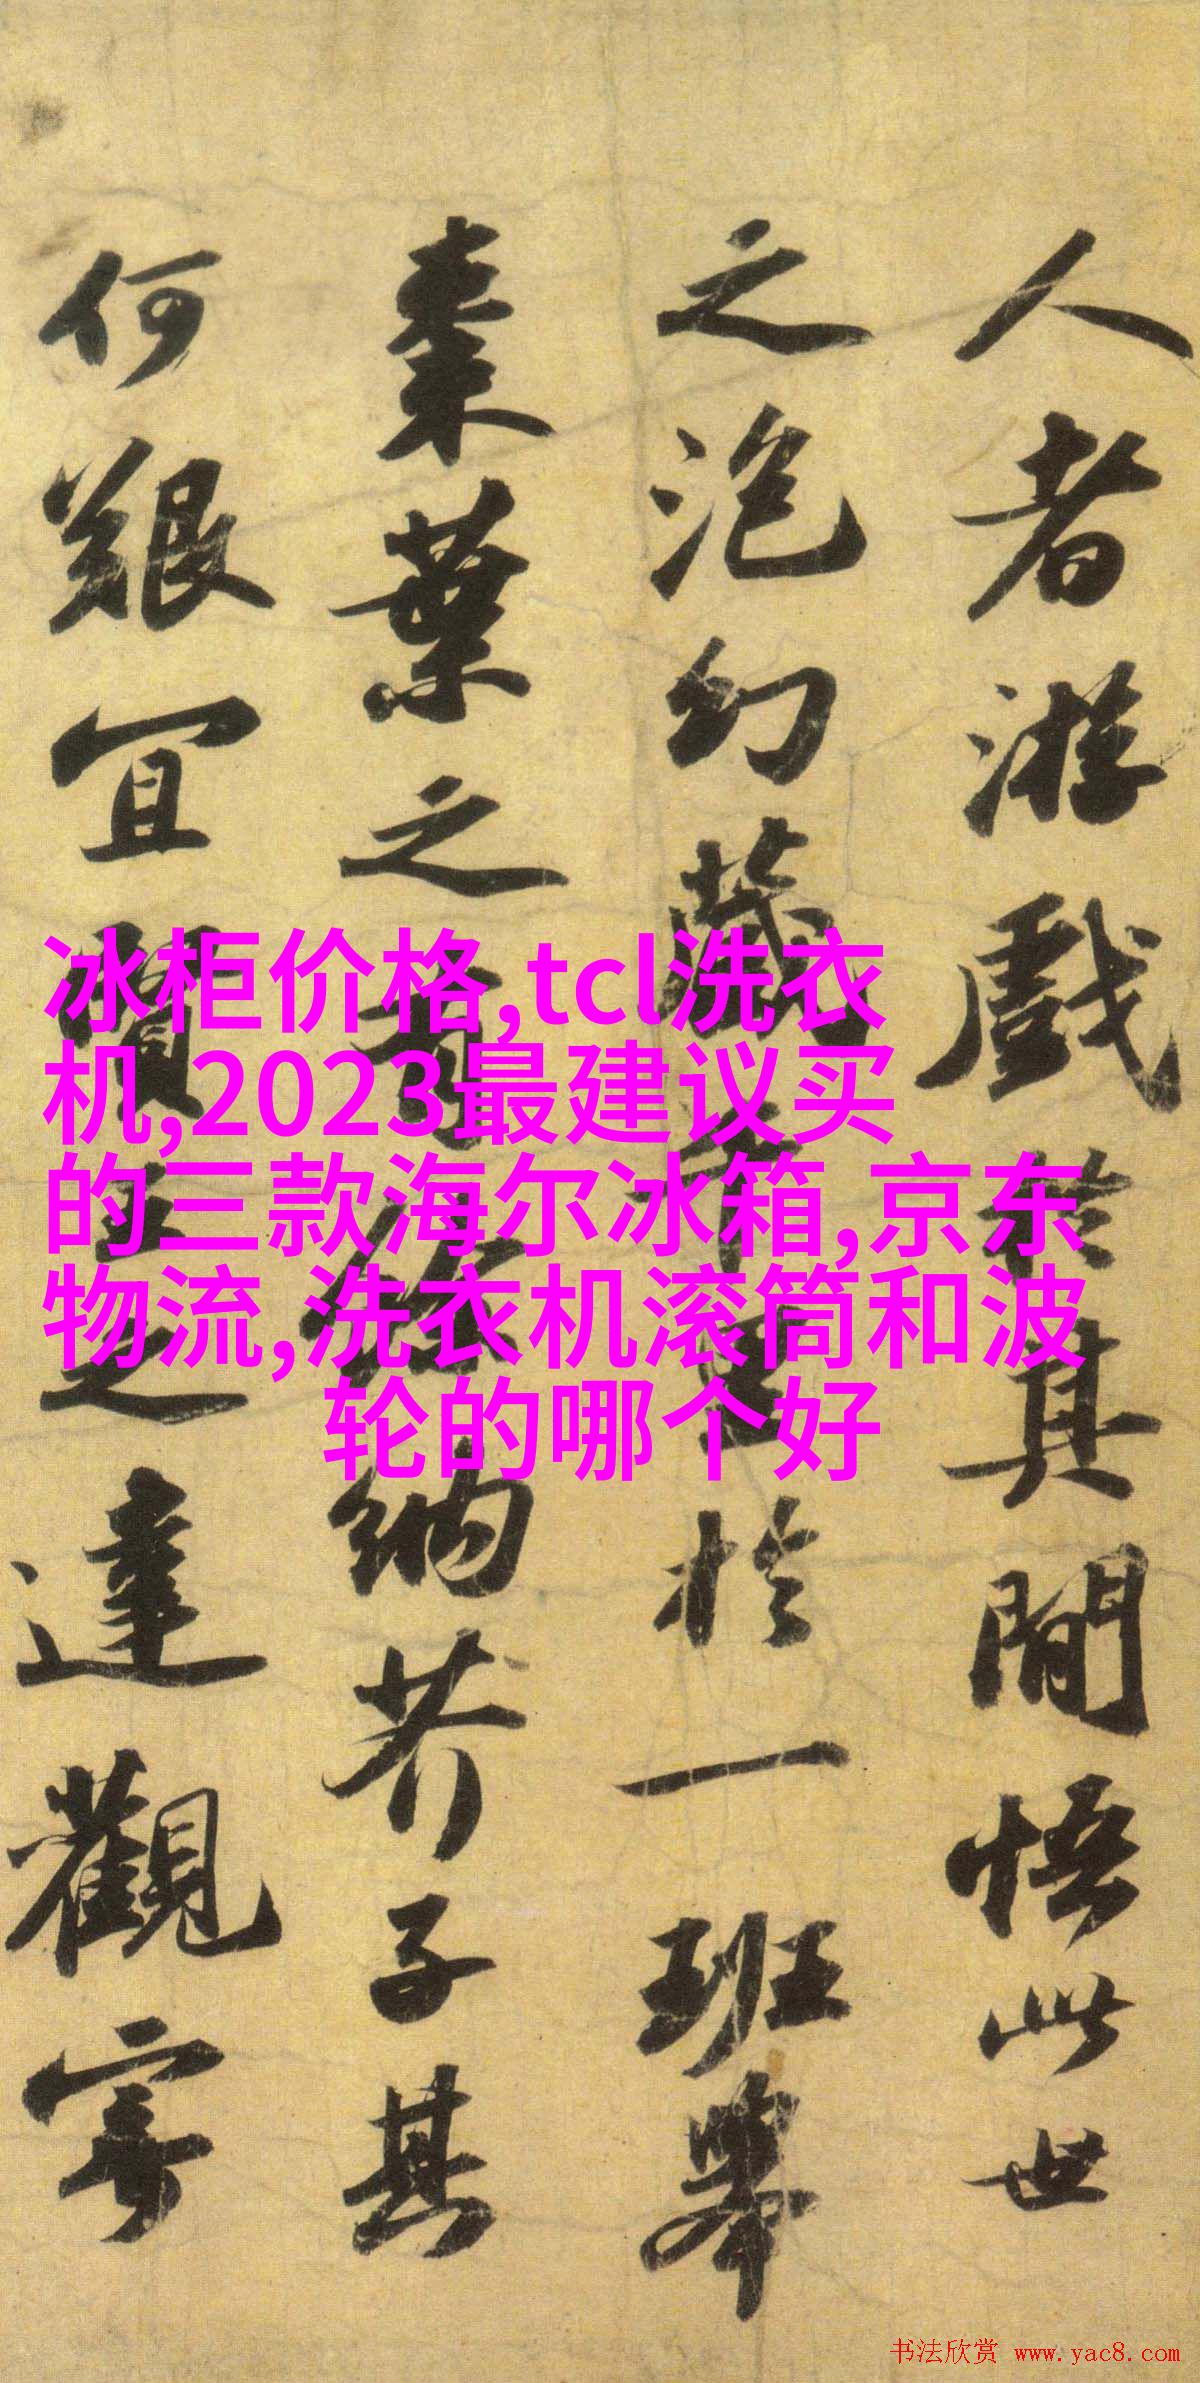 人者游戲於其間悟此世
之泡幻藏千里於一班舉
棗葉之有餘納芥子其
何艱宜賢王之達觀寄
冰柜价格,tcl洗衣
机,2023最建议买
的三款海尔冰箱,京东
物流,洗衣机滚筒和波
轮的哪个好
书法欣赏 www.yac8.com